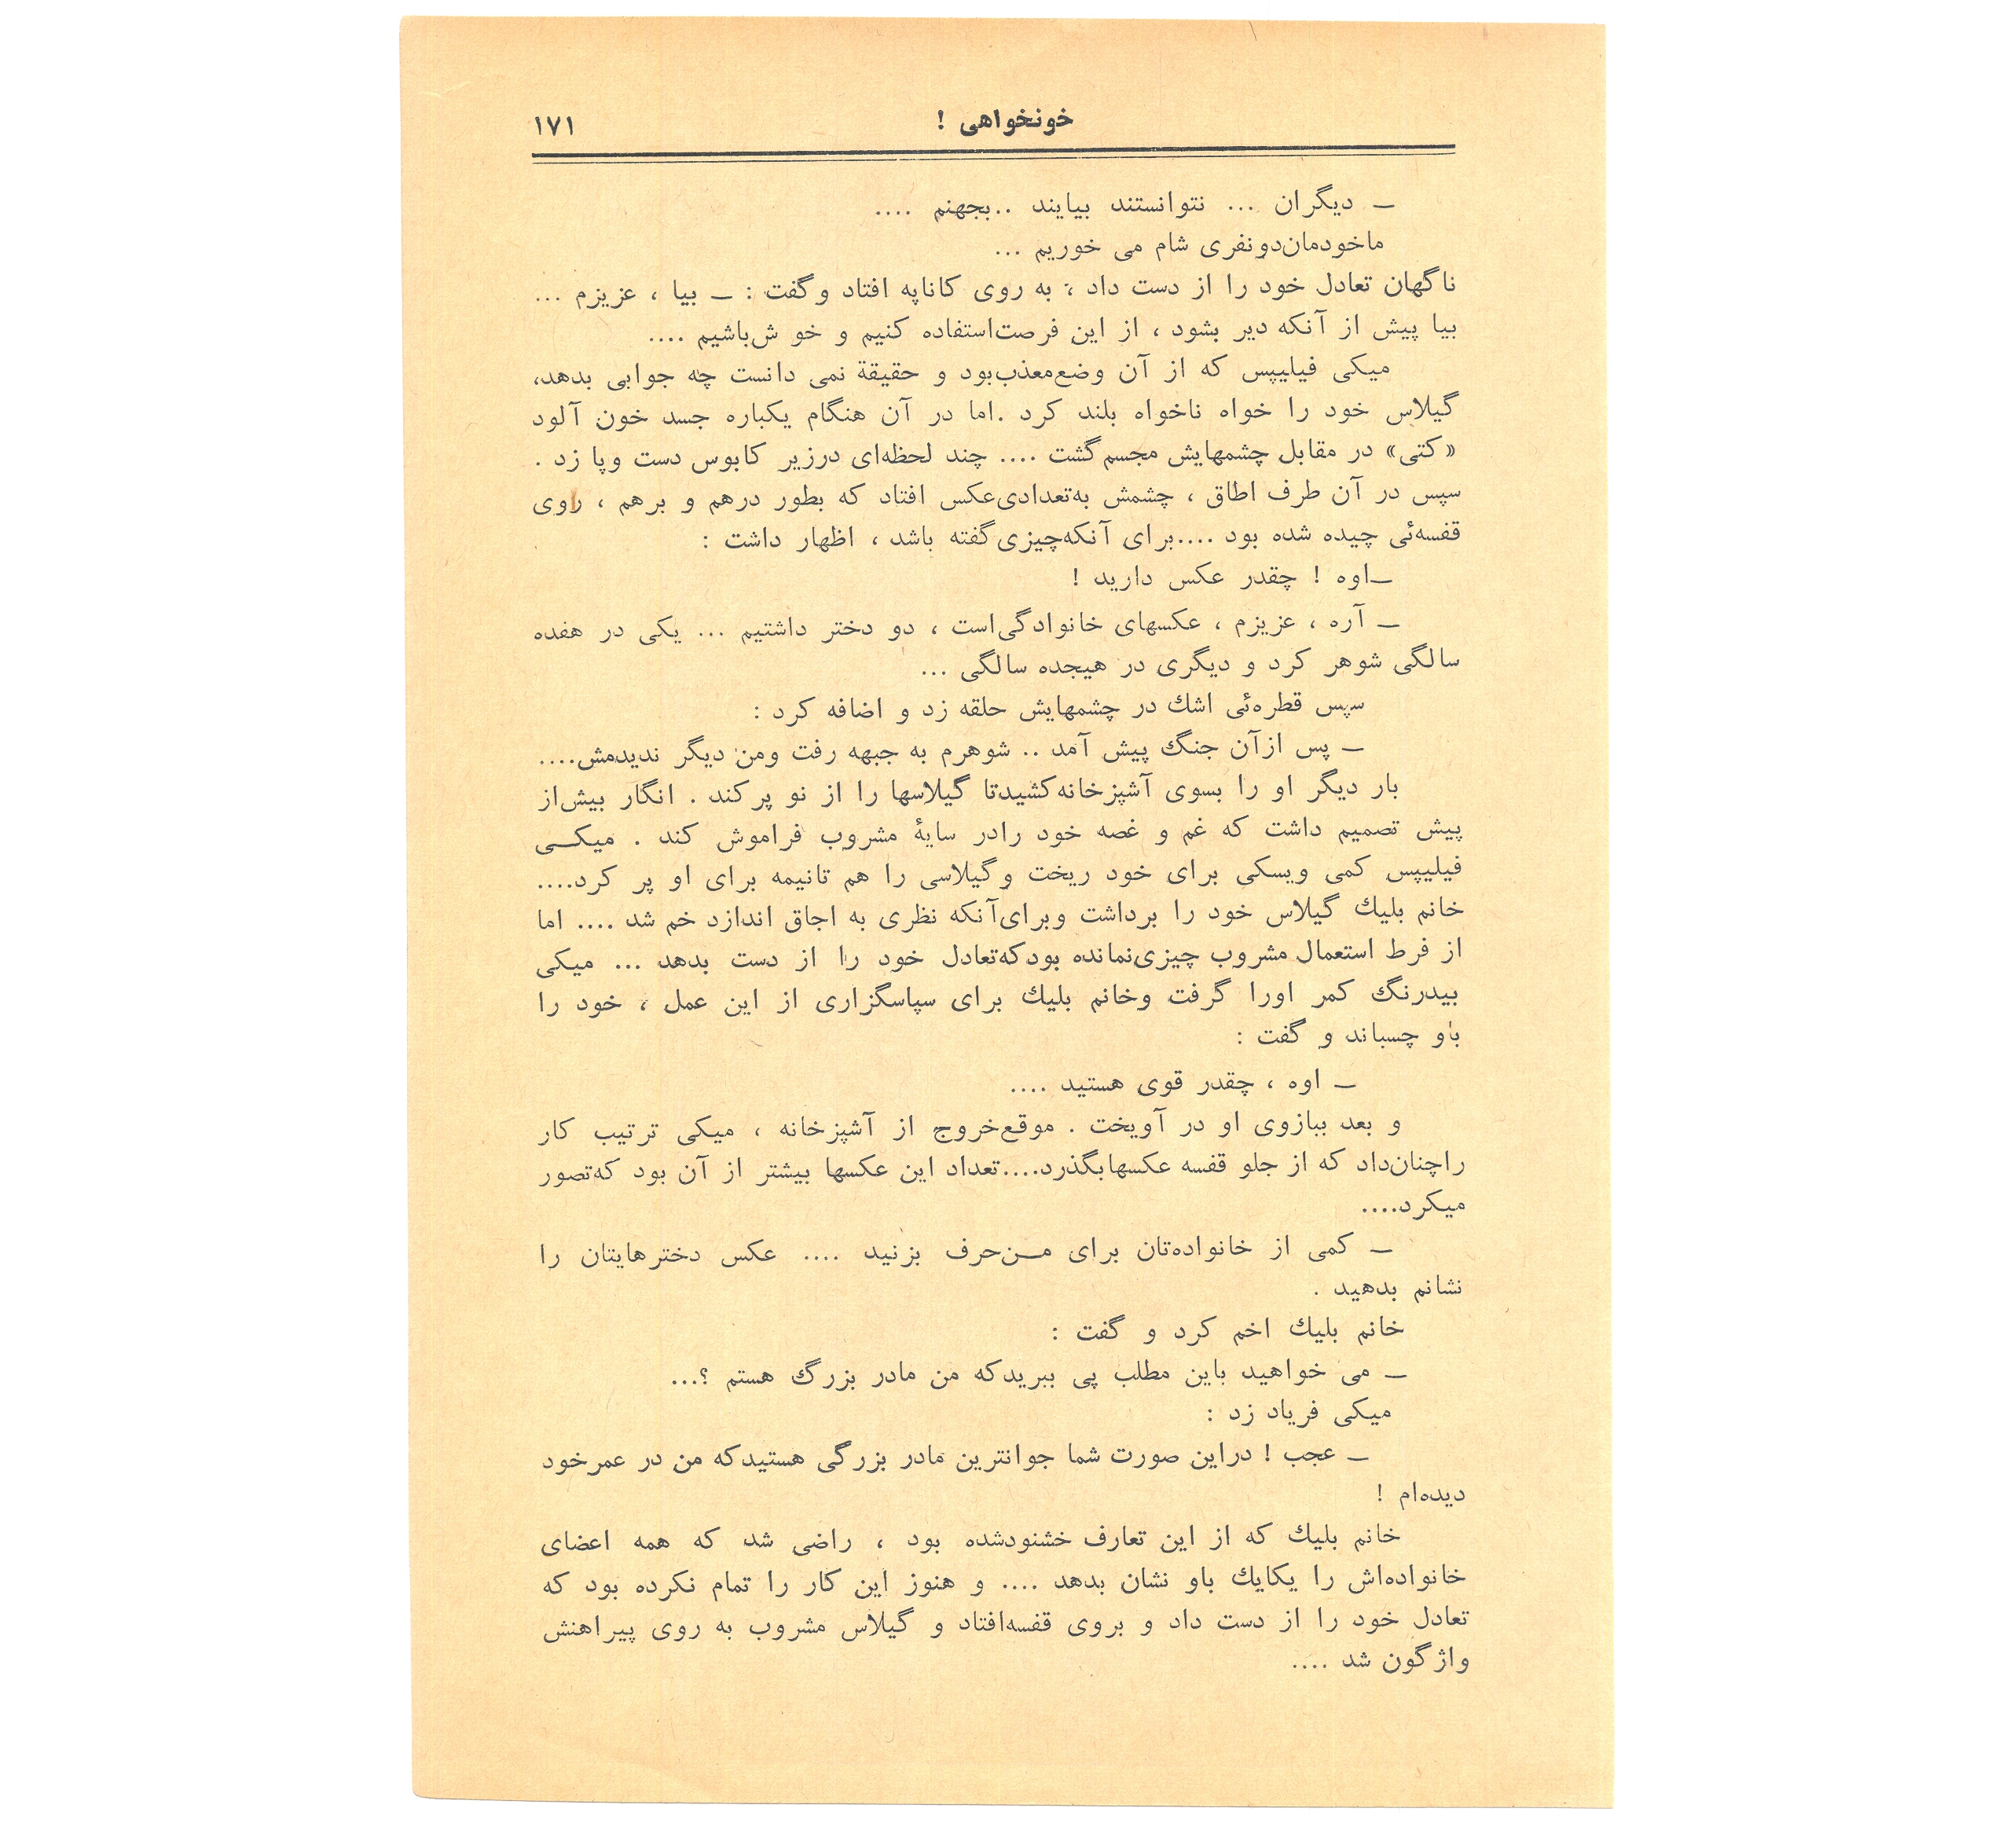 خونخواهی !
۱۷۱
ـ دیگران ... نتوانستند بیایند ..بجهنم ....
ماخودمان‌دونفری شام می خوریم ...
ناگهان تعادل خود را از دست داد ، به روی کاناپه افتاد وگفت : ـ بیا ، عزیزم ...
بیا پیش از آنکه دیر بشود ، از این فرصت‌استفاده کنیم و خو ش‌باشیم ....
میکی فیلیپس که از آن وضع‌معذب‌بود و حقیقة نمی دانست چه جوابی بدهد،
گیلاس خود را خواه ناخواه بلند کرد .اما در آن هنگام یکباره جسد خون آلود
«کتی» در مقابل چشمهایش مجسم‌گشت .... چند لحظه‌ای درزیر کابوس دست وپا زد .
سپس در آن طرف اطاق ، چشمش به‌تعدادی‌عکس افتاد که بطور درهم و برهم ، روی
قفسه‌ئی چیده شده بود ....برای آنکه‌چیزی‌گفته باشد ، اظهار داشت :
ـاوه ! چقدر عکس دارید !
ـ آره ، عزیزم ، عکسهای خانوادگی‌است ، دو دختر داشتیم ... یکی در هفده
سالگی شوهر کرد و دیگری در هیجده سالگی ...
سپس قطره‌ئی اشك در چشمهایش حلقه زد و اضافه کرد :
ـ پس ازآن جنگ پیش آمد .. شوهرم به جبهه رفت ومن دیگر ندیدمش....
بار دیگر او را بسوی آشپزخانه‌کشیدتا گیلاسها را از نو پرکند . انگار بیش‌از
پیش تصمیم داشت که غم و غصه خود رادر سایهٔ مشروب فراموش کند . میکـی
فیلیپس کمی ویسکی برای خود ریخت وگیلاسی را هم تانیمه برای او پر کرد....
خانم بلیك گیلاس خود را برداشت وبرای‌آنکه نظری به اجاق اندازد خم شد .... اما
از فرط استعمال مشروب چیزی‌نمانده بودکه‌تعادل خود را از دست بدهد ... میکی
بیدرنگ کمر اورا گرفت وخانم بلیك برای سپاسگزاری از این عمل ، خود را
باو چسباند و گفت :
ـ اوه ، چقدر قوی هستید ....
و بعد ببازوی او در آویخت . موقع‌خروج از آشپزخانه ، میکی ترتیب کار
راچنان‌داد که از جلو قفسه عکسهابگذرد....تعداد این عکسها بیشتر از آن بود که‌تصور
میکرد....
ـ کمی از خانواده‌تان برای مـن‌حرف بزنید .... عکس دخترهایتان را
نشانم بدهید .
خانم بلیك اخم کرد و گفت :
ـ می خواهید باین مطلب پی ببریدکه من مادر بزرگ هستم ؟...
میکی فریاد زد :
ـ عجب ! دراین صورت شما جوانترین مادر بزرگی هستیدکه من در عمرخود
دیده‌ام !
خانم بلیك که از این تعارف خشنودشده بود ، راضی شد که همه اعضای
خانواده‌اش را یکایك باو نشان بدهد .... و هنوز این کار را تمام نکرده بود که
تعادل خود را از دست داد و بروی قفسه‌افتاد و گیلاس مشروب به روی پیراهنش
واژگون شد ....